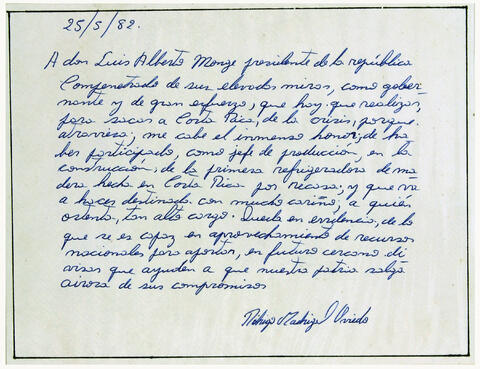 25/5/82.
A don Luis Alberto Monge presidente de la república
Compenetrado de sus elevados miras, como gober-
nante y de gran esfuerzo, que hay, que realizar,
para sacar a Costa Rica, de la crisis, porque.
atraviesa; me cabe el inmenso honor, de ha
ber participado, como jefe de producción, en la
construcción, de la primera refrigeradora de ma
dera hecha en Costa Rica por recosa; y que va
a hacer destinada con mucho cariño, a quién
ostenta, tan alto cargo. Queda en evidencia, de lo
que se es capaz en aprovechamiento de recursos
nacionales para aportar, en futuro cercano di
visas que ayuden a que nuestra patria salga
airosa de sus compromisos
Madrigal Oviedo